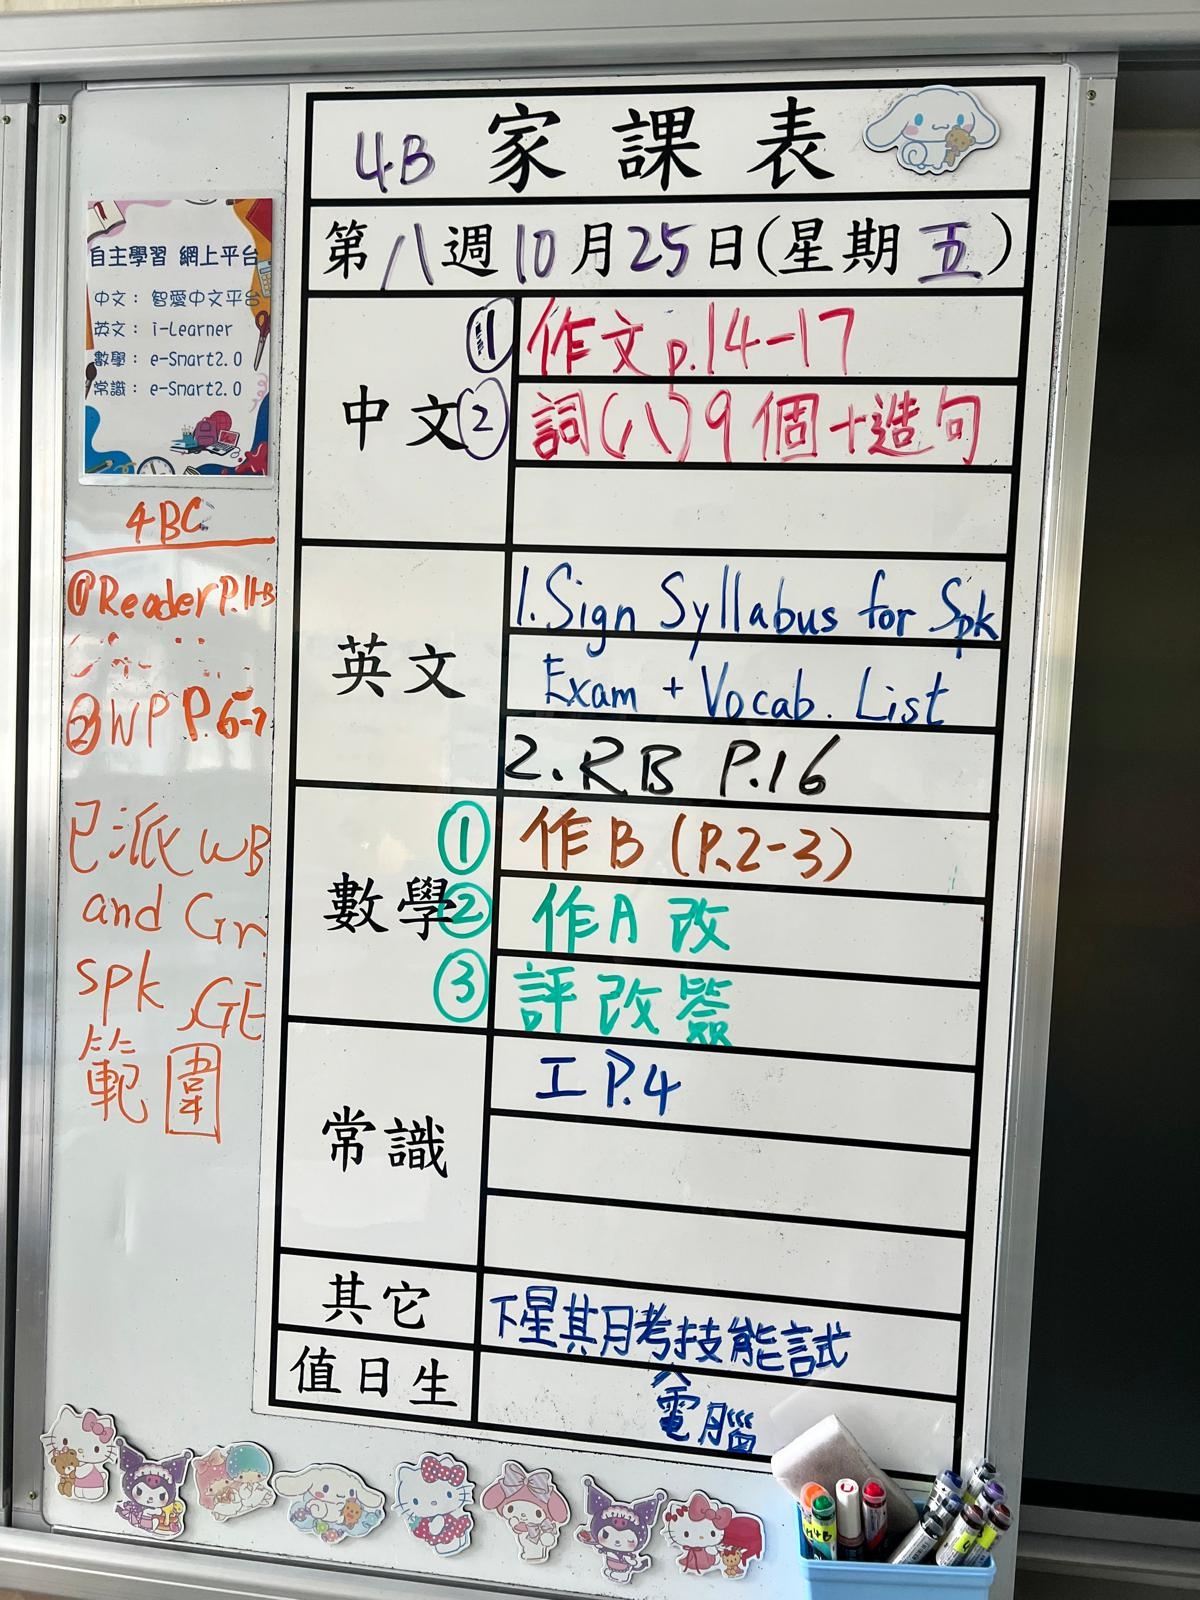 4B 家課表
第八週10月25日(星期五)
中文
① 作文 p.14-17
② 詞(八)9個+造句
英文
1. Sign Syllabus for Spk
Exam + Vocab. List
2. RB P.16
數學
① 作B (P.2-3)
② 作A 改
③ 評改簽
常識
工 P.4
其它
下星其月考技能試
^電腦
值日生
自主學習 網上平台
中文: 智愛中文平台
英文: i-Learner
數學: e-Smart2.0
常識: e-Smart2.0
4BC
① Reader P.11-13
② WP P.6-7
已派 WB
and Gr.
spk, GE
範圍